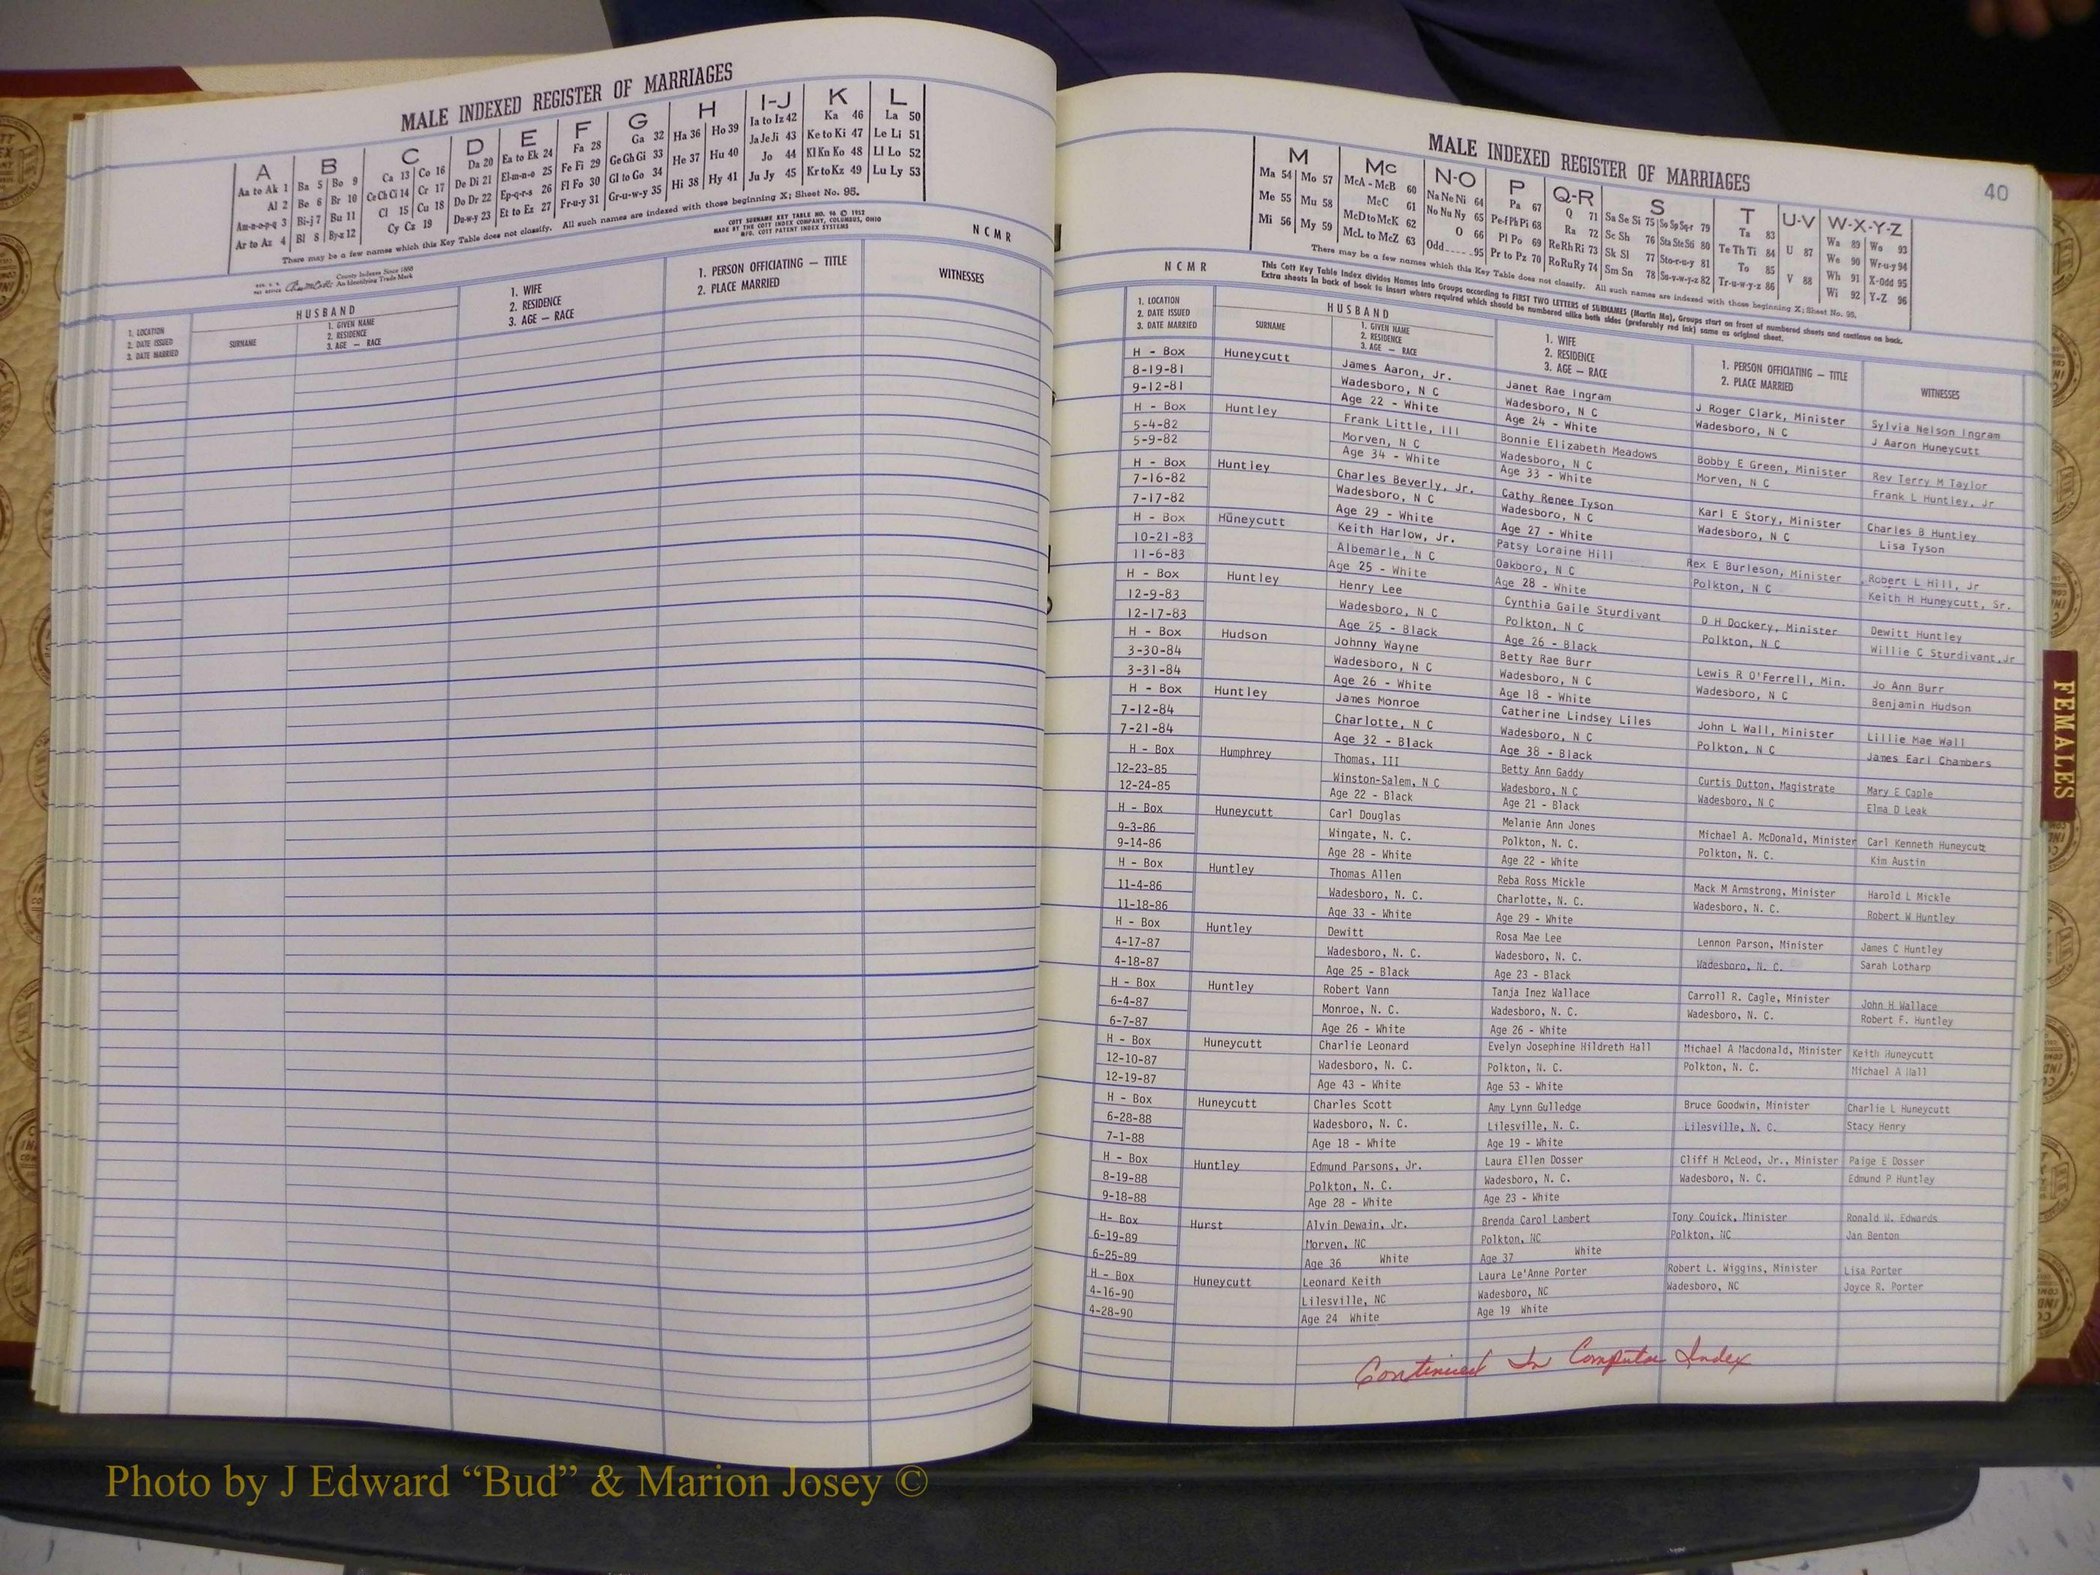 MALE INDEXED REGISTER OF MARRIAGES
A B C D E F G H I-J K L
Aa to Ak 1 Ba 5 Bo 9 Ca 13 Co 16 Da 20 Ea to Ek 24 Fa 28 Ga 32 Ha 36 Ho 39 Ia to Iz 42 Ka 46 La 50
Al 2 Be 6 Br 10 Ce Ch Ci 14 Cr 17 De Di 21 El-m-n-o 25 Fe Fi 29 Ge Gh Gi 33 He 37 Hu 40 Ja Je Ji 43 Ke to Ki 47 Le Li 51
Am-n-o-p-q 3 Bi-j 7 Bu 11 Cl 15 Cu 18 Do Dr 22 Ep-q-r-s 26 Fl Fo 30 Gl to Go 34 Hi 38 Hy 41 Jo 44 Kl Kn Ko 48 Ll Lo 52
Ar to Az 4 Bl 8 By-z 12 Cy Cz 19 Du-w-y 23 Et to Ez 27 Fr-u-y 31 Gr-u-w-y 35 Ju Jy 45 Kr to Kz 49 Lu Ly 53
There may be a few names which this Key Table does not classify. All such names are indexed with those beginning X; Sheet No. 95.
County Indexes Since 1888
An Identifying Trade Mark
COTT SURNAME KEY TABLE NO. 96 © 1952
MADE BY THE COTT INDEX COMPANY, COLUMBUS, OHIO
MFG. COTT PATENT INDEX SYSTEMS
N C M R
1. LOCATION
2. DATE ISSUED
3. DATE MARRIED
HUSBAND
SURNAME
1. GIVEN NAME
2. RESIDENCE
3. AGE — RACE
1. WIFE
2. RESIDENCE
3. AGE — RACE
1. PERSON OFFICIATING — TITLE
2. PLACE MARRIED
WITNESSES
MALE INDEXED REGISTER OF MARRIAGES
40
M Mc N-O P Q-R S T U-V W-X-Y-Z
Ma 54 Mo 57 McA - McB 60 Na Ne Ni 64 Pa 67 Q 71 Sa Se Si 75 So Sp Sq-r 79 Ta 83 U 87 Wa 89 Wo 93
Me 55 Mu 58 McC 61 No Nu Ny 65 Pe-f Ph Pi 68 Ra 72 Sc Sh 76 Sta Ste Sti 80 Te Th Ti 84 V 88 We 90 Wr-u-y 94
Mi 56 My 59 McD to McK 62 O 66 Pl Po 69 Re Rh Ri 73 Sk Sl 77 Sto-r-u-y 81 To 85 Wh 91 X-Odd 95
McL to McZ 63 Odd 95 Pr to Pz 70 Ro Ru Ry 74 Sm Sn 78 Su-v-w-y-z 82 Tr-u-w-y-z 86 Wi 92 Y-Z 96
There may be a few names which this Key Table does not classify. All such names are indexed with those beginning X; Sheet No. 95.
N C M R
This Cott Key Table Index divides Names into Groups according to FIRST TWO LETTERS of SURNAMES (Martin Ma), Groups start on front of numbered sheets and continue on back.
Extra sheets in back of book to insert where required which should be numbered alike both sides (preferably red ink) same as original sheet.
1. LOCATION
2. DATE ISSUED
3. DATE MARRIED
HUSBAND
SURNAME
1. GIVEN NAME
2. RESIDENCE
3. AGE — RACE
1. WIFE
2. RESIDENCE
3. AGE — RACE
1. PERSON OFFICIATING — TITLE
2. PLACE MARRIED
WITNESSES
H - Box Huneycutt James Aaron, Jr. Janet Rae Ingram J Roger Clark, Minister Sylvia Nelson Ingram
8-19-81 Wadesboro, N C Wadesboro, N C Wadesboro, N C J Aaron Huneycutt
9-12-81 Age 22 - White Age 24 - White
H - Box Huntley Frank Little, III Bonnie Elizabeth Meadows Bobby E Green, Minister Rev Terry M Taylor
5-4-82 Morven, N C Wadesboro, N C Morven, N C Frank L Huntley, Jr
5-9-82 Age 34 - White Age 33 - White
H - Box Huntley Charles Beverly, Jr. Cathy Renee Tyson Karl E Story, Minister Charles B Huntley
7-16-82 Wadesboro, N C Wadesboro, N C Wadesboro, N C Lisa Tyson
7-17-82 Age 29 - White Age 27 - White
H - Box Huneycutt Keith Harlow, Jr. Patsy Loraine Hill Rex E Burleson, Minister Robert L Hill, Jr
10-21-83 Albemarle, N C Oakboro, N C Polkton, N C Keith H Huneycutt, Sr.
11-6-83 Age 25 - White Age 28 - White
H - Box Huntley Henry Lee Cynthia Gaile Sturdivant D H Dockery, Minister Dewitt Huntley
12-9-83 Wadesboro, N C Polkton, N C Polkton, N C Willie C Sturdivant,Jr
12-17-83 Age 25 - Black Age 26 - Black
H - Box Hudson Johnny Wayne Betty Rae Burr Lewis R O'Ferrell, Min. Jo Ann Burr
3-30-84 Wadesboro, N C Wadesboro, N C Wadesboro, N C Benjamin Hudson
3-31-84 Age 26 - White Age 18 - White
H - Box Huntley James Monroe Catherine Lindsey Liles John L Wall, Minister Lillie Mae Wall
7-12-84 Charlotte, N C Wadesboro, N C Polkton, N C James Earl Chambers
7-21-84 Age 32 - Black Age 38 - Black
H - Box Humphrey Thomas, III Betty Ann Gaddy Curtis Dutton, Magistrate Mary E Caple
12-23-85 Winston-Salem, N C Wadesboro, N C Wadesboro, N C Elma D Leak
12-24-85 Age 22 - Black Age 21 - Black
H - Box Huneycutt Carl Douglas Melanie Ann Jones Michael A. McDonald, Minister Carl Kenneth Huneycutt
9-3-86 Wingate, N. C. Polkton, N. C. Polkton, N. C. Kim Austin
9-14-86 Age 28 - White Age 22 - White
H - Box Huntley Thomas Allen Reba Ross Mickle Mack M Armstrong, Minister Harold L Mickle
11-4-86 Wadesboro, N. C. Charlotte, N. C. Wadesboro, N. C. Robert W Huntley
11-18-86 Age 33 - White Age 29 - White
H - Box Huntley Dewitt Rosa Mae Lee Lennon Parson, Minister James C Huntley
4-17-87 Wadesboro, N. C. Wadesboro, N. C. Wadesboro, N. C. Sarah Lotharp
4-18-87 Age 25 - Black Age 23 - Black
H - Box Huntley Robert Vann Tanja Inez Wallace Carroll R. Cagle, Minister John H Wallace
6-4-87 Monroe, N. C. Wadesboro, N. C. Wadesboro, N. C. Robert F. Huntley
6-7-87 Age 26 - White Age 26 - White
H - Box Huneycutt Charlie Leonard Evelyn Josephine Hildreth Hall Michael A Macdonald, Minister Keith Huneycutt
12-10-87 Wadesboro, N. C. Polkton, N. C. Polkton, N. C. Michael A Hall
12-19-87 Age 43 - White Age 53 - White
H - Box Huneycutt Charles Scott Amy Lynn Gulledge Bruce Goodwin, Minister Charlie L Huneycutt
6-28-88 Wadesboro, N. C. Lilesville, N. C. Lilesville, N. C. Stacy Henry
7-1-88 Age 18 - White Age 19 - White
H - Box Huntley Edmund Parsons, Jr. Laura Ellen Dosser Cliff H McLeod, Jr., Minister Paige E Dosser
8-19-88 Polkton, N. C. Wadesboro, N. C. Wadesboro, N. C. Edmund P Huntley
9-18-88 Age 28 - White Age 23 - White
H- Box Hurst Alvin Dewain, Jr. Brenda Carol Lambert Tony Couick, Minister Ronald W. Edwards
6-19-89 Morven, NC Polkton, NC Polkton, NC Jan Benton
6-25-89 Age 36 White Age 37 White
H - Box Huneycutt Leonard Keith Laura Le'Anne Porter Robert L. Wiggins, Minister Lisa Porter
4-16-90 Lilesville, NC Wadesboro, NC Wadesboro, NC Joyce R. Porter
4-28-90 Age 24 White Age 19 White
Continued In Computer Index
FEMALES
Photo by J Edward “Bud” & Marion Josey ©